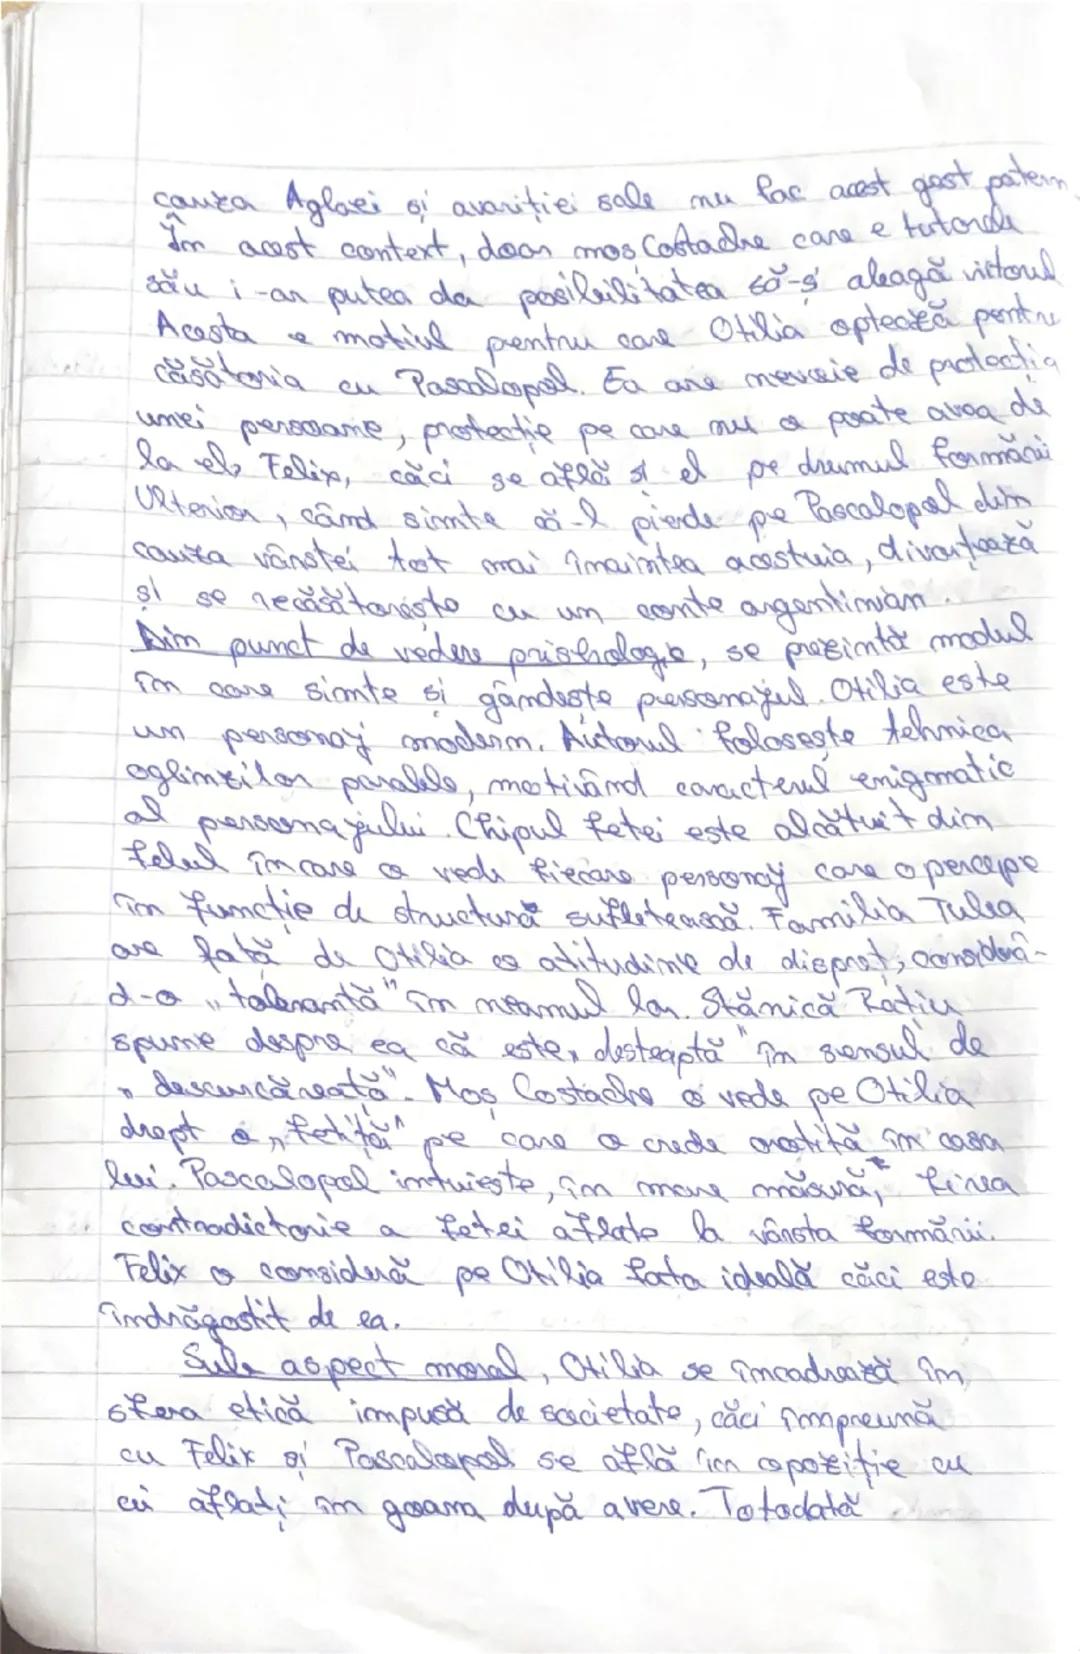 cauza Aglaei și avariției sale nu fac acest gest patern
În acest context, doar moș Costache care e tutorele
său i-ar putea da posibilitatea să-ș aleagă viitorul
Acesta e motivul pentru care Otilia optează pentru
căsătoria cu Pascalopol. Ea are nevoie de protecția
unei persoane, protecție pe care nu o poate avea de
la el, Felix, căci se află și el pe drumul formării
Ulterior, când simte că-l pierde pe Pascalopol din
cauza vârstei tot mai înaintea acestuia, divorțează
și se recăsătorește cu un conte argentinian.
Din punct de vedere psihologic, se prezintă modul
în care simte și gândește personajul. Otilia este
un personaj modern. Autorul folosește tehnica
oglinzilor paralele, motivând caracterul enigmatic
al personajului. Chipul fetei este alcătuit din
felul în care o vede fiecare personaj care o percepe
în funcție de structură sufletească. Familia Tulea
are față de Otilia o atitudine de dispreț, considerâ-
d-o „tolerantă" în neamul lor. Stănică Rațiu
spune despre ea că este „deșteaptă" în sensul de
„descurcăreață". Moș Costache o vede pe Otilia
drept o „fetiță" pe care o crede ocrotită în casa
lui. Pascalopol intuiește, în mare măsură, firea
contradictorie a fetei aflate la vârsta formării.
Felix o consideră pe Otilia fata ideală căci este
îndrăgostit de ea.
Sub aspect moral, Otilia se încadrează în
sfera etică impusă de societate, căci împreună
cu Felix și Pascalopol se află în opoziție cu
cei aflați în goana după avere. Totodată